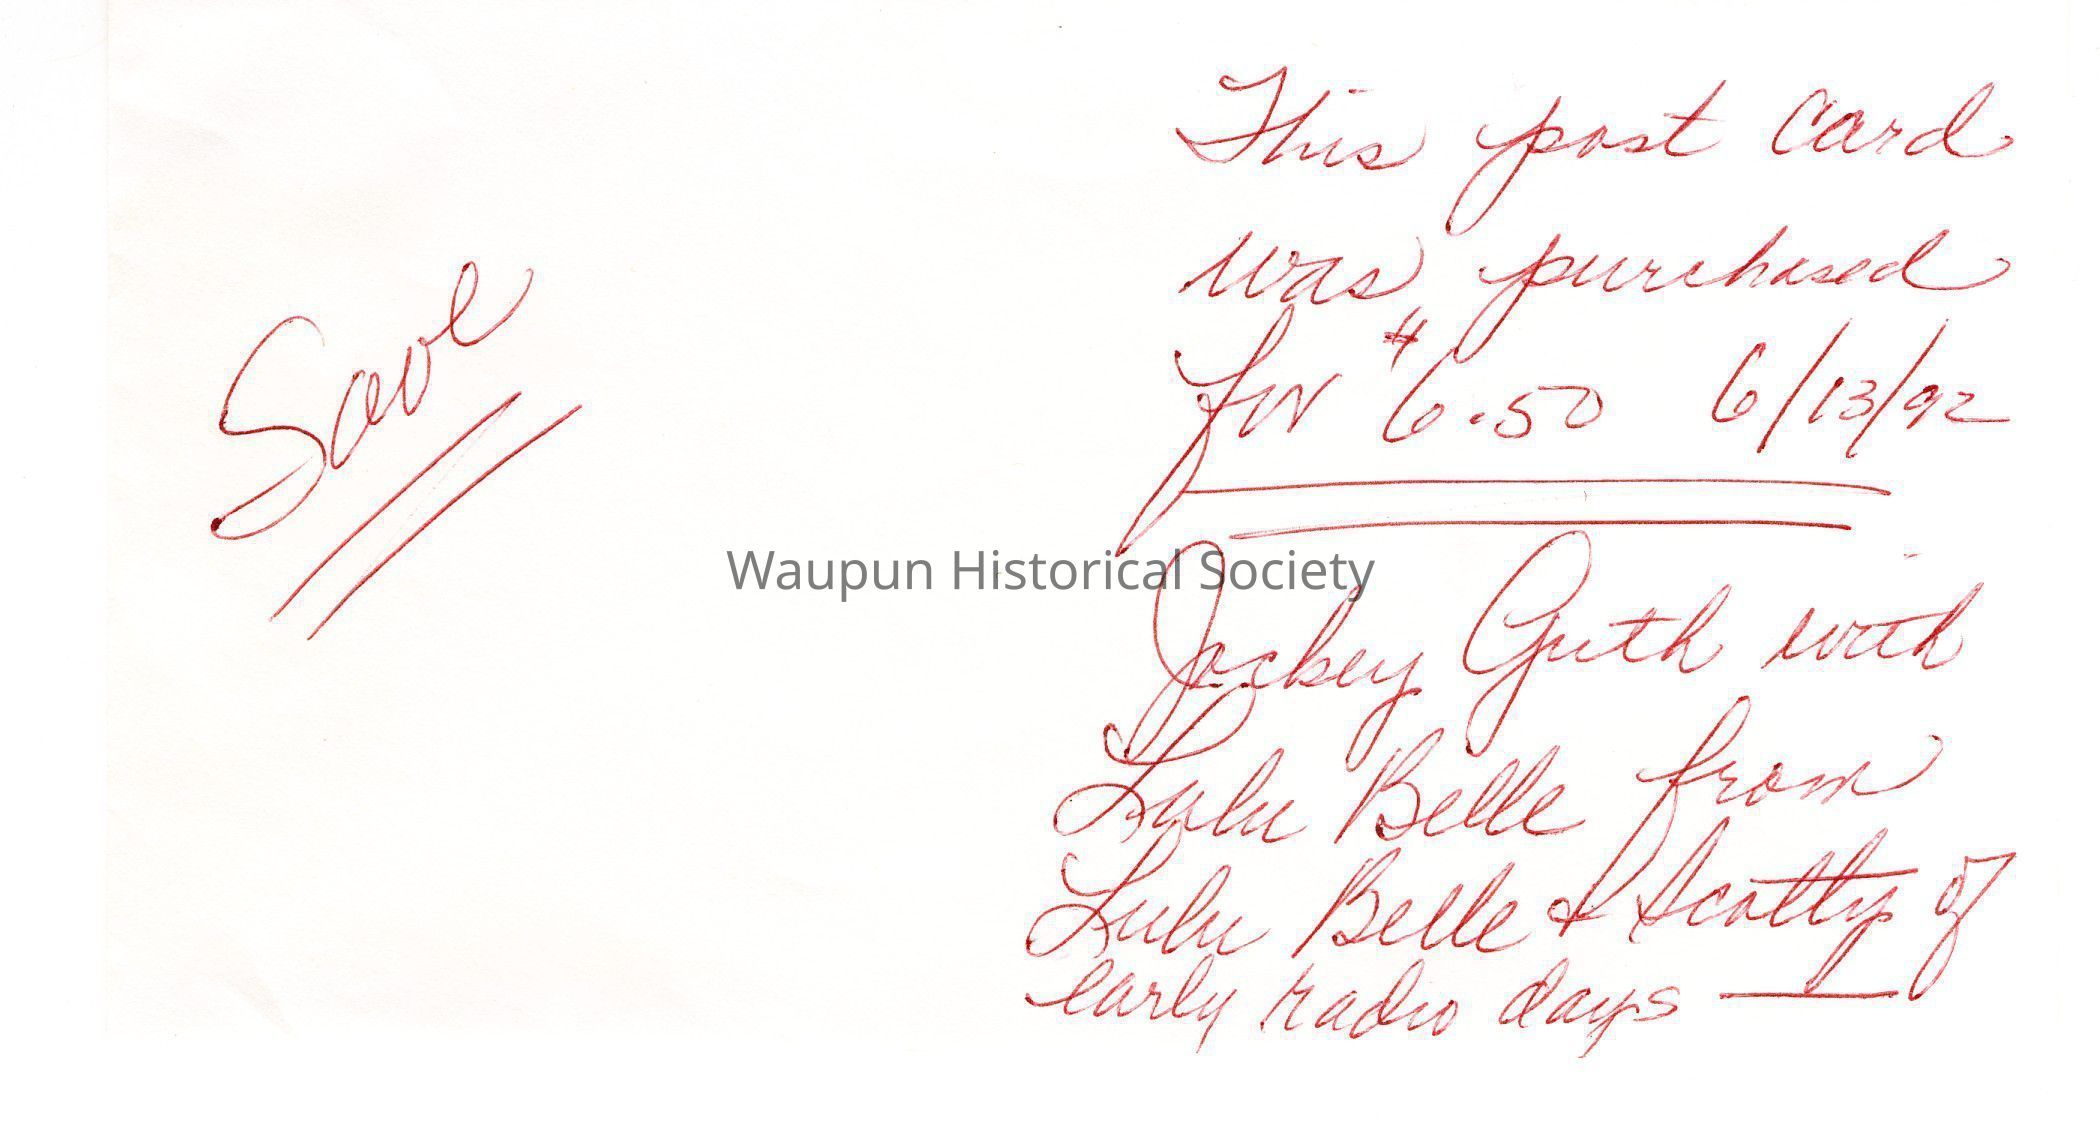 Save
This post card
was purchased
for $6.50 6/13/92
Waupun Historical Society
Jockey Guth with
Lulu Belle from
Lulu Belle & Scotty of
early radio days —